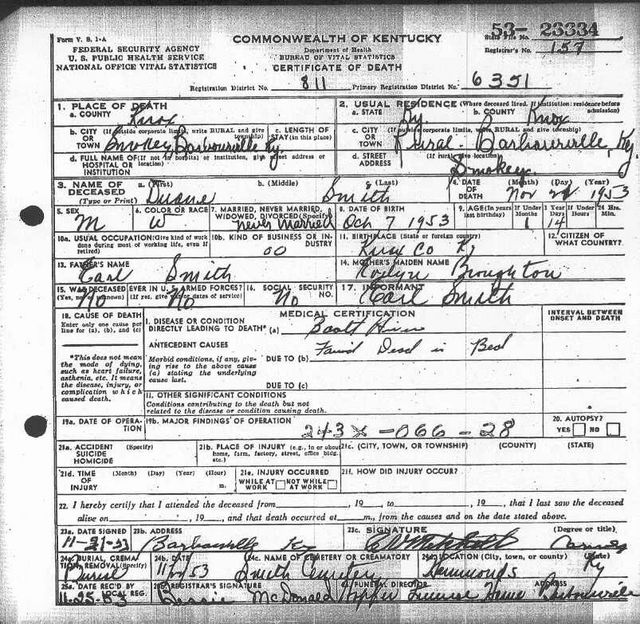 Form V. S. 1-A
FEDERAL SECURITY AGENCY
U. S. PUBLIC HEALTH SERVICE
NATIONAL OFFICE VITAL STATISTICS
COMMONWEALTH OF KENTUCKY
Department of Health
BUREAU OF VITAL STATISTICS
CERTIFICATE OF DEATH
53- 23334
Registrar's No. 157
Registration District No. 811 Primary Registration District No. 6351
1. PLACE OF DEATH
a. COUNTY Knox
b. CITY OR TOWN Smokey, Barbourville Ky.
c. LENGTH OF STAY (in this place)
d. FULL NAME OF (If not in hospital or institution, give street address or location) HOSPITAL OR INSTITUTION
2. USUAL RESIDENCE (Where deceased lived. If institution: residence before admission)
a. STATE Ky b. COUNTY Knox
c. CITY OR TOWN Rural- Barbourville, Ky
d. STREET ADDRESS Smokey
3. NAME OF DECEASED (Type or Print)
a. (First) Duane b. (Middle) c. (Last) Smith
4. DATE OF DEATH (Month) (Day) (Year) Nov 1953
5. SEX M
6. COLOR OR RACE W
7. MARRIED, NEVER MARRIED, WIDOWED, DIVORCED (Specify) never Married
8. DATE OF BIRTH Oct 7 1953
9. AGE (In years last birthday) If Under 1 Year If Under 24 Hrs.
Months 1 Days 14
10a. USUAL OCCUPATION (Give kind of work done during most of working life, even if retired)
10b. KIND OF BUSINESS OR INDUSTRY 00
11. BIRTHPLACE (State or foreign country) Knox Co Ky
12. CITIZEN OF WHAT COUNTRY?
13. FATHER'S NAME Earl Smith
14. MOTHER'S MAIDEN NAME Evelyn Broughton
15. WAS DECEASED EVER IN U. S. ARMED FORCES? (Yes, no, or unknown) (If yes, give war or dates of service) No No
16. SOCIAL SECURITY NO. No
17. INFORMANT Earl Smith
18. CAUSE OF DEATH
Enter only one cause per line for (a), (b), and (c)
*This does not mean the mode of dying, such as heart failure, asthenia, etc. It means the disease, injury, or complication which caused death.
MEDICAL CERTIFICATION
INTERVAL BETWEEN ONSET AND DEATH
I. DISEASE OR CONDITION DIRECTLY LEADING TO DEATH* (a)
ANTECEDENT CAUSES Found Dead in Bed
Morbid conditions, if any, giving rise to the above cause (a) stating the underlying cause last.
DUE TO (b)
DUE TO (c)
II. OTHER SIGNIFICANT CONDITIONS
Conditions contributing to the death but not related to the disease or condition causing death.
19a. DATE OF OPERATION
19b. MAJOR FINDINGS OF OPERATION
243X-066-28
20. AUTOPSY? YES NO
21a. ACCIDENT SUICIDE HOMICIDE (Specify)
21b. PLACE OF INJURY (e.g., in or about home, farm, factory, street, office bldg., etc.)
21c. (CITY, TOWN, OR TOWNSHIP) (COUNTY) (STATE)
21d. TIME OF INJURY (Month) (Day) (Year) (Hour)
21e. INJURY OCCURRED WHILE AT WORK NOT WHILE AT WORK
21f. HOW DID INJURY OCCUR?
22. I hereby certify that I attended the deceased from , 19 to , 19 , that I last saw the deceased
alive on , 19 , and that death occurred at m., from the causes and on the date stated above.
23a. DATE SIGNED 11-21-53
23b. ADDRESS Barbourville Ky
23c. SIGNATURE (Degree or title) Coroner
24a. BURIAL, CREMATION, REMOVAL (Specify) Burial
24b. DATE
24c. NAME OF CEMETERY OR CREAMATORY Smith Cemetery
24d. LOCATION (City, town, or county) (State) Hammonds Ky
25a. DATE REC'D BY LOCAL REG. 11-25-53
25b. REGISTRAR'S SIGNATURE Bessie McDonald
26. FUNERAL DIRECTOR ADDRESS Hopper Funeral Home Barbourville